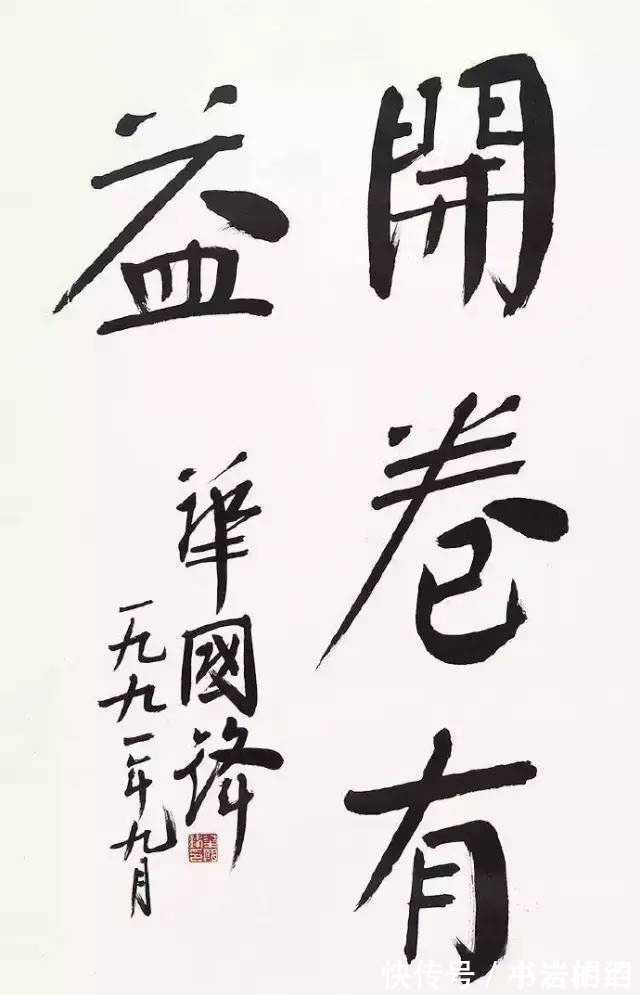 開卷有
益
華國鋒
一九九一年九月
快传号/书法